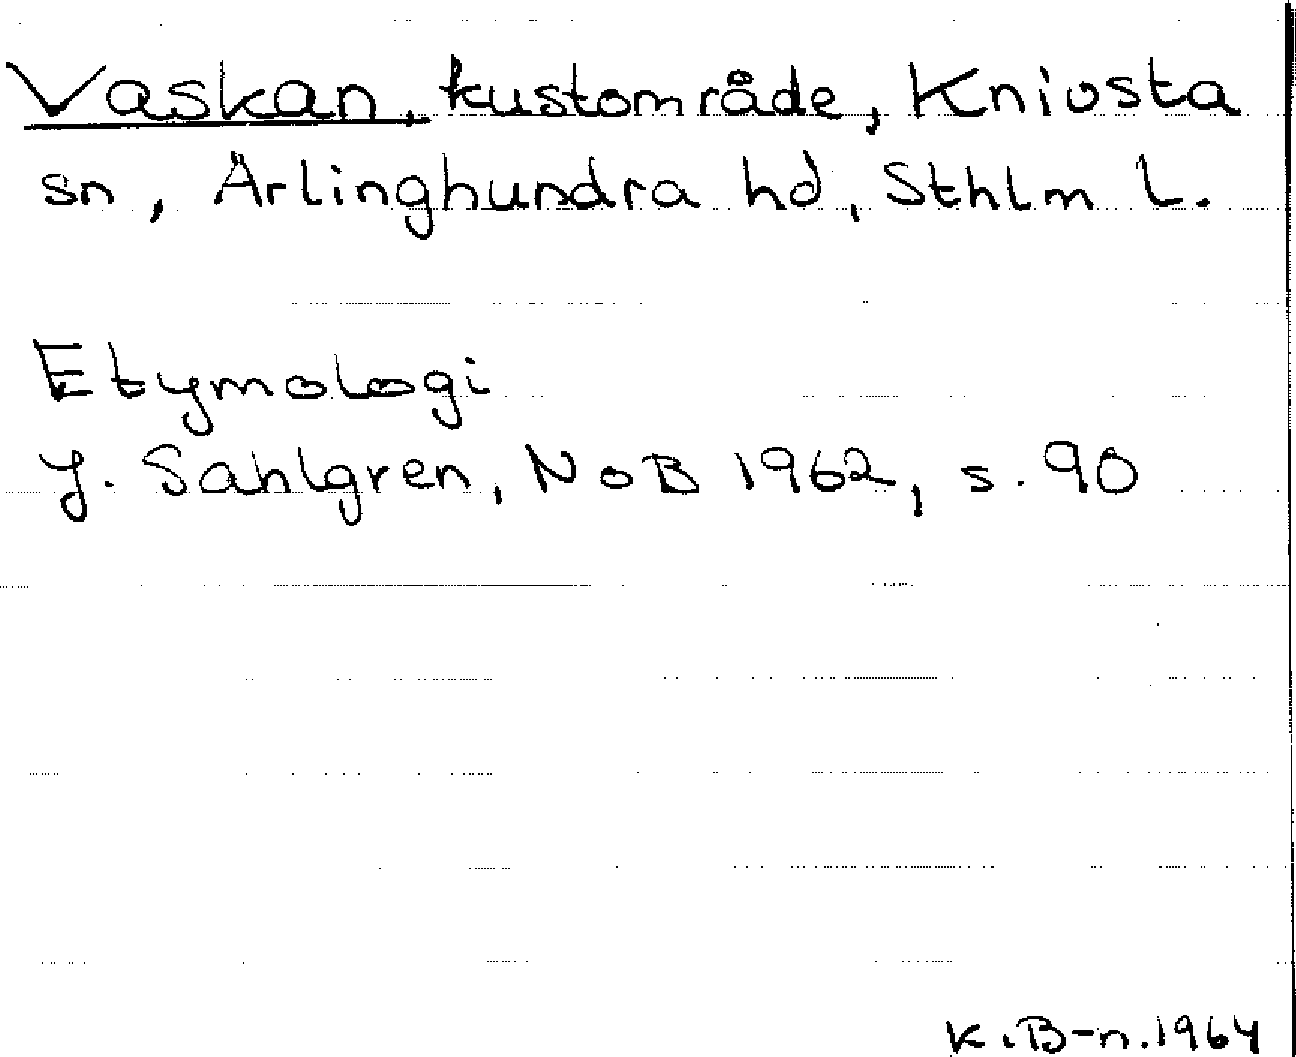 Vaskan, kustområde, Knivsta
sn, Ärlinghundra hd, Sthlm L.
Etymologi
J. Sahlgren, NoB 1962, s. 90
K.B-n. 1964